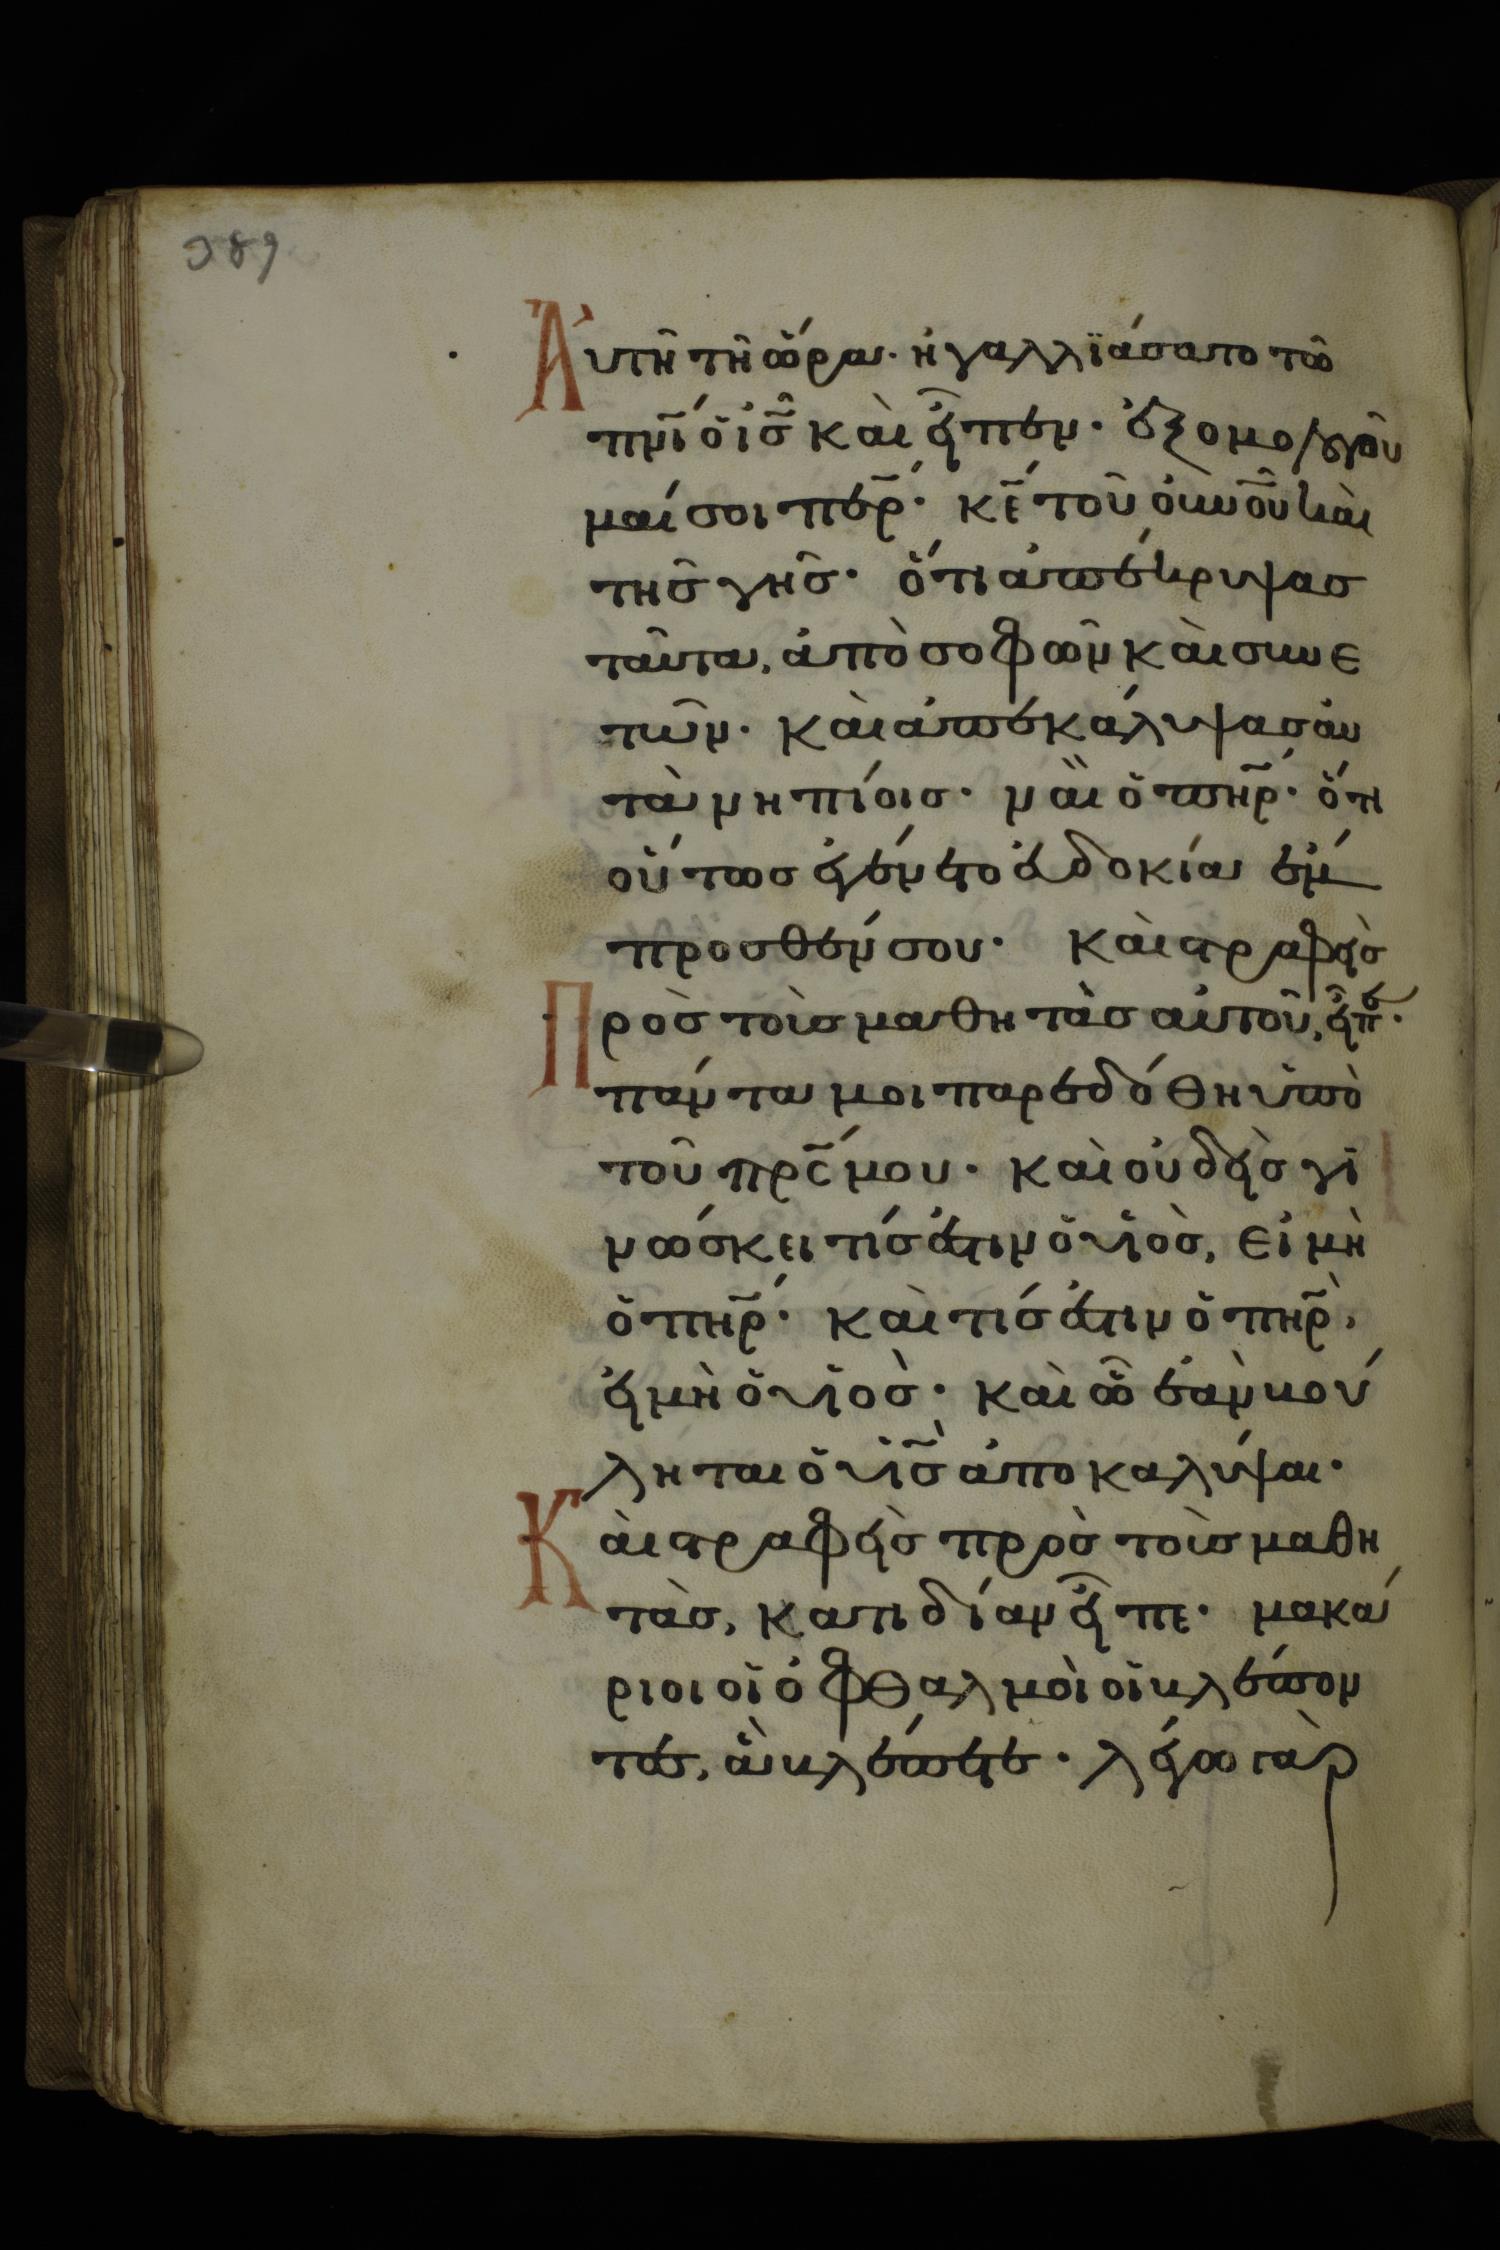 389
Αυτῆ τῆ ὥρα· ἠγαλλϊάσατο τῶ
πνῐ ὁ ἰς̃ καὶ εἶπεν· ἐξομολογοῦ
μαί σοι περ̃· κε̃ τοῦ οὐνοῦ καὶ
τῆς γῆς· ὅτι ἀπέκρυψας
ταῦτα, ἀπὸ σοφῶν καὶ συνε
τῶν· καὶ ἀπεκάλυψας αυ
τὰ νηπίοις· ναὶ ὁ πηρ̃· ὅτι
οὕτως ἐγένετο εὐδοκία ἔμ
προσθέν σου· καὶ στραφεὶς
Πρὸς τοὺς μαθητὰς αὐτοῦ, εἶπ·
πάντα μοι παρεδόθη ὑπὸ
τοῦ πρς̃ μου· καὶ οὐδεὶς γι
νώσκει τίς ἐστιν ὁ υἱὸς, εἰ μὴ
ὁ πηρ̃· καὶ τίς ἐστιν ὁ πηρ̃,
εἰ μὴ ὁ υἱὸς· καὶ ὧ ἐὰν βού
ληται ὁ υἱς̃ ἀποκαλύψαι·
Καὶ στραφεὶς πρὸς τοὺς μαθη
τὰς, κατιδίαν εἶπε· μακά
ριοι οἱ ὀφθαλμοὶ οἱ βλέπον
τες, ἃ βλέπετε· λέγω γὰρ